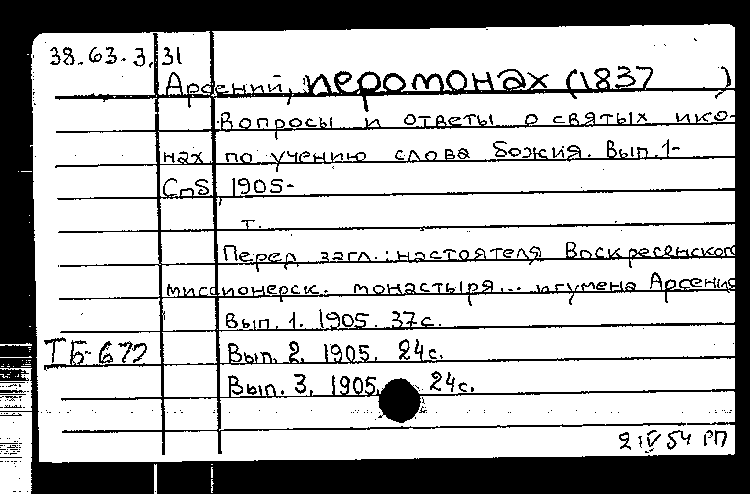 38.63.3.31
Арсений, иеромонах (1837 )
Вопросы и ответы о святых ико-
нах по учению слова Божия. Вып.1-
СпБ, 1905-
т.
Перед загл.: настоятеля Воскресенского
миссионерск. монастыря... игумена Арсения
Вып. 1. 1905. 37с.
ІБ-672 Вып. 2. 1905. 24с.
Вып. 3. 1905. 24с.
2 IV 54 РП